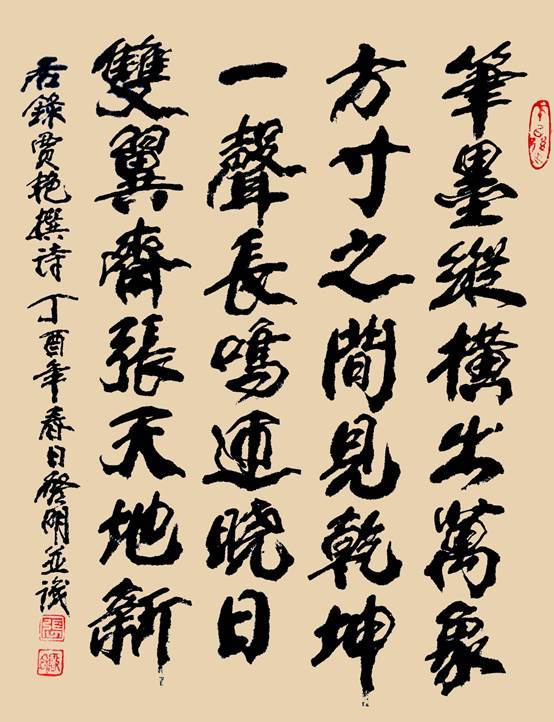 筆墨縱橫出萬象
方寸之間見乾坤
一聲長鳴迎曉日
雙翼齊張天地新
右錄賈艳撰诗 丁酉年春日啓明並識